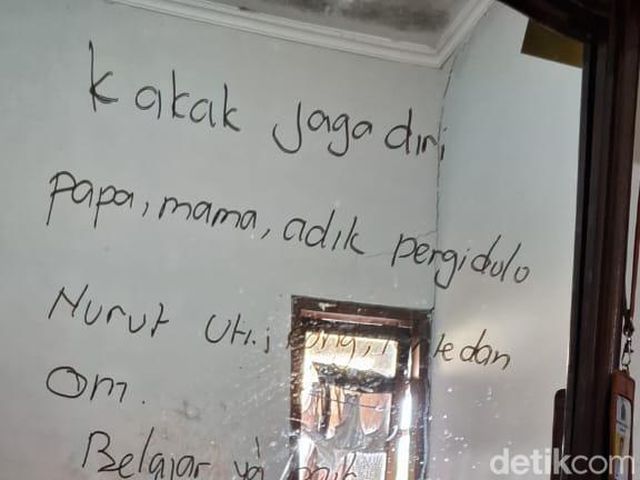 Kakak jaga diri
Papa, mama, adik pergi dulo
Nurut Uti,
dan
Om.
Belajar
detikcom